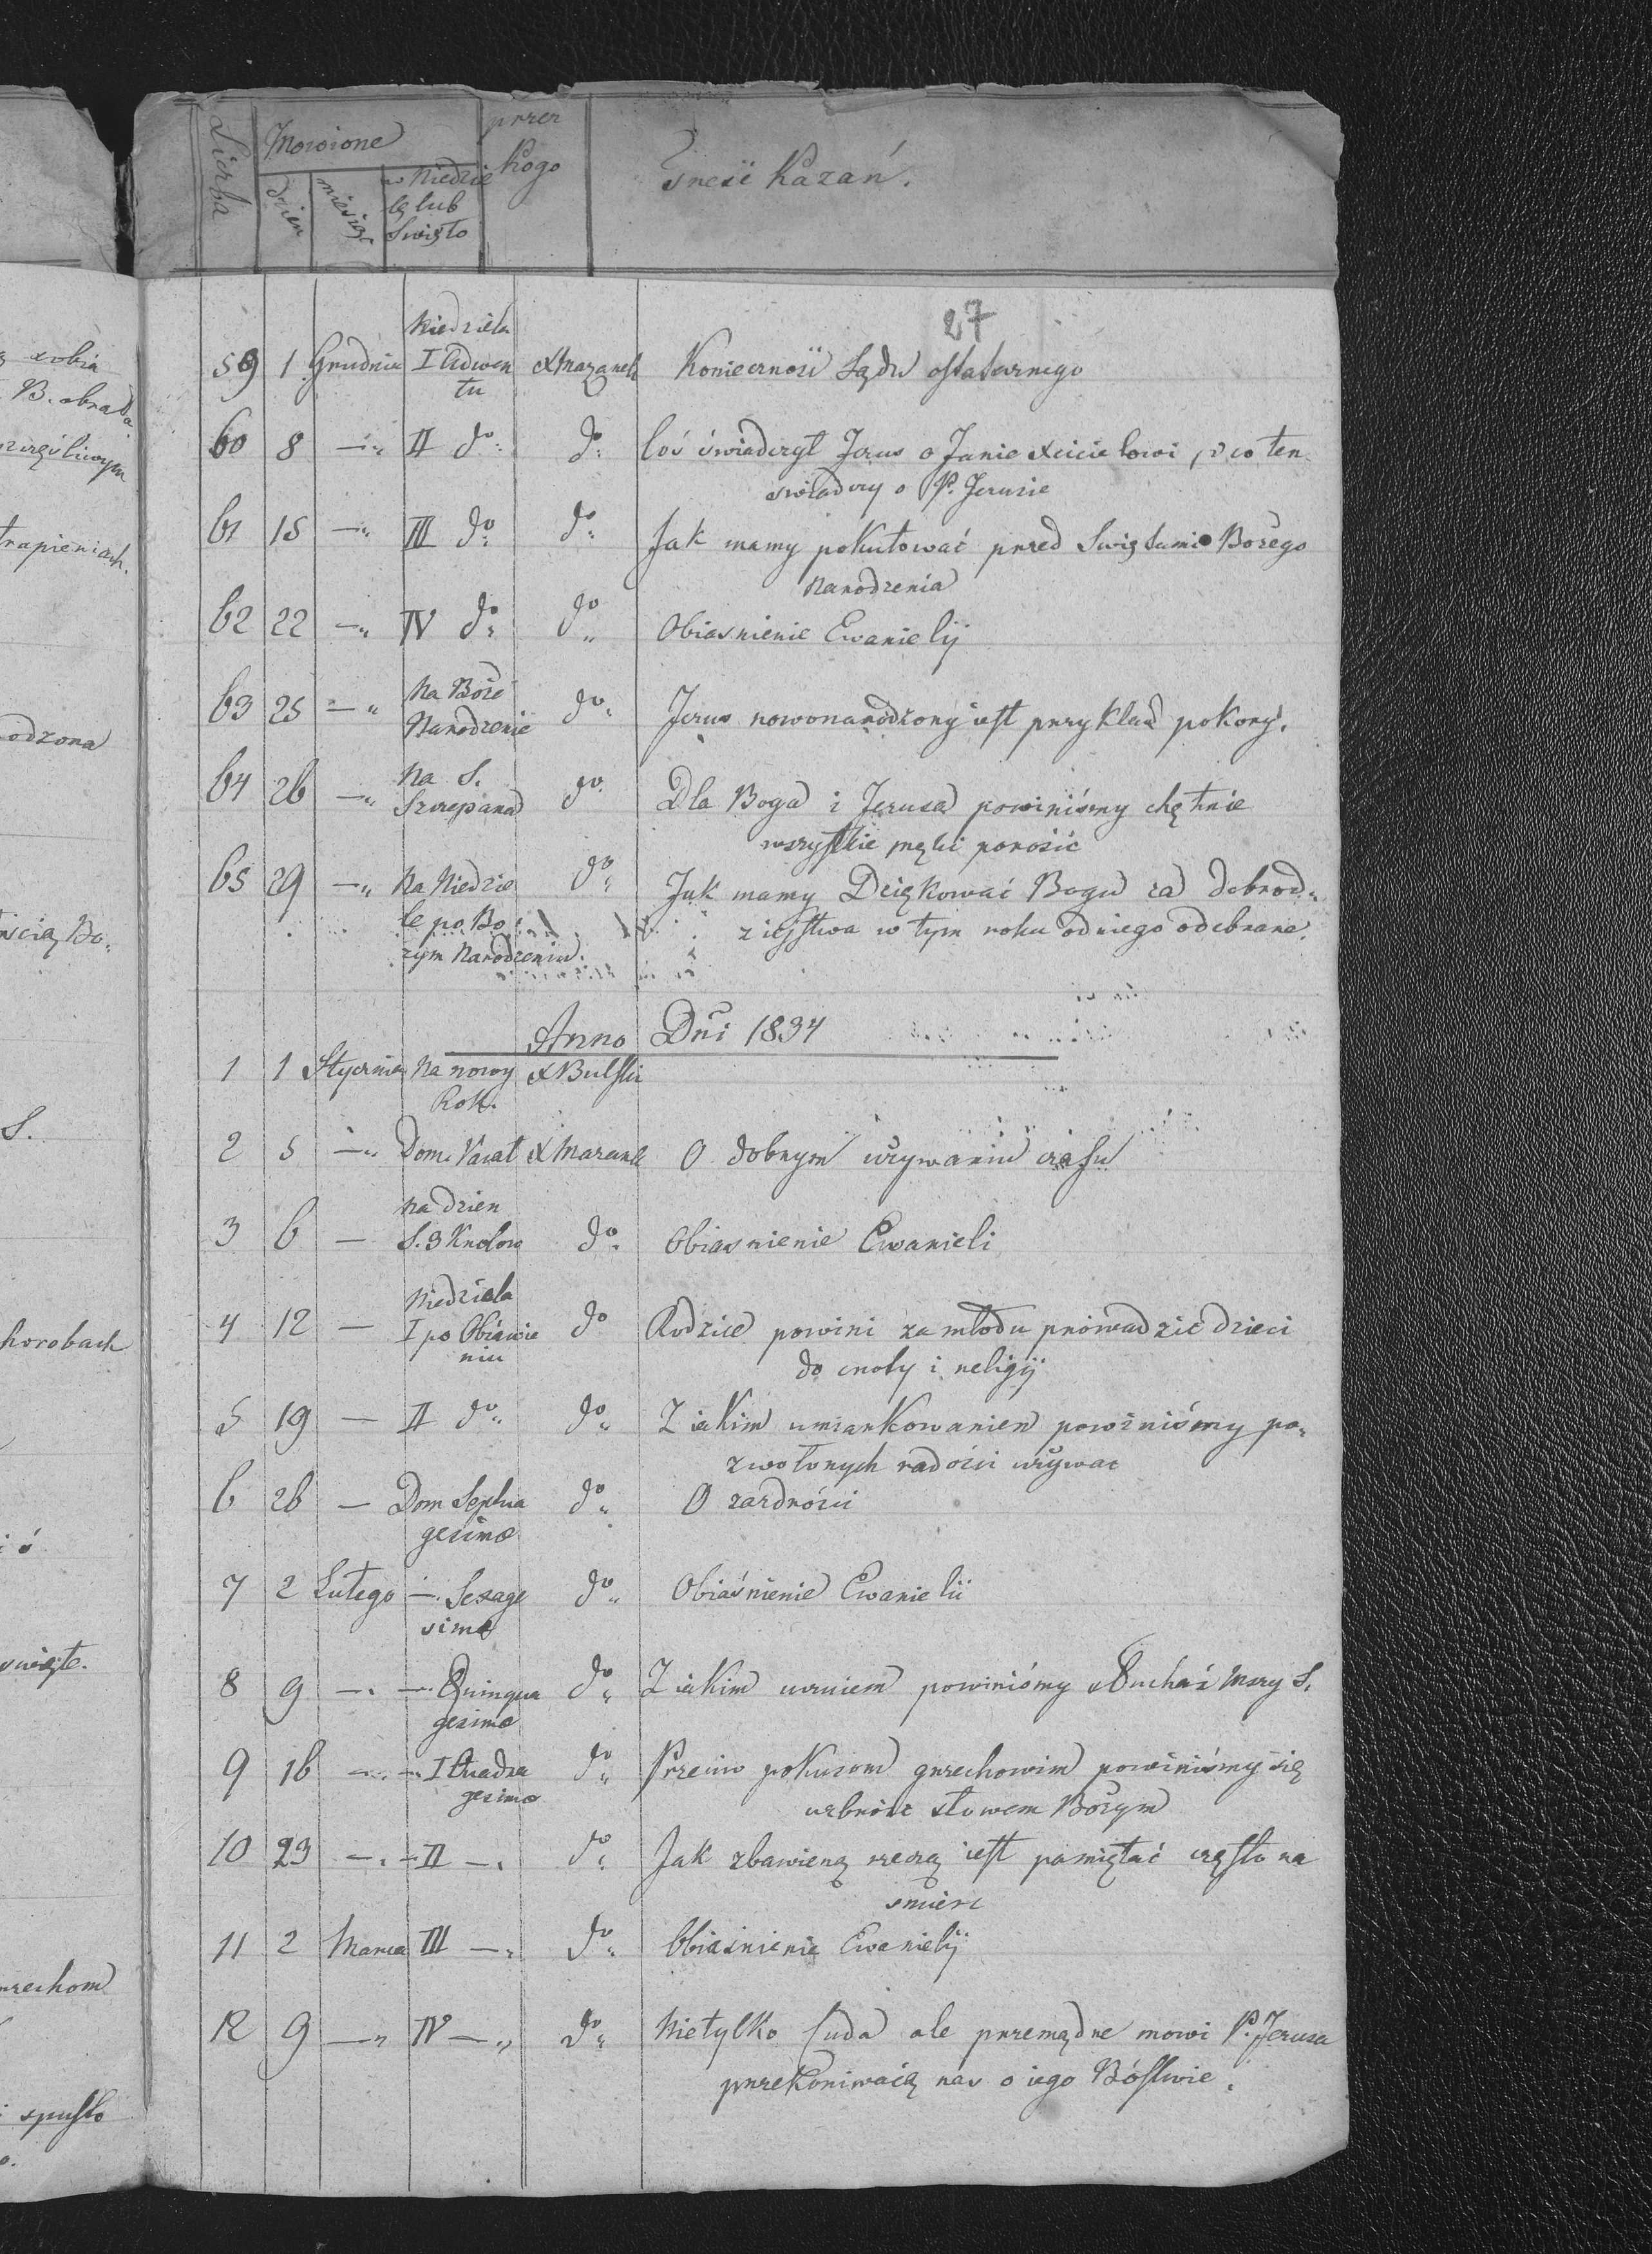 Liczba Mowione przez kogo Treść Kazań.
dzien miesiąc w Niedzie
lę lub
Swięto
27
Niedziela
59 1 Grudnia I Adwen X Mazanek Konieczność Sądu ostatecznego
tu
60 8 —„ II do do Coś świadczył Jezus o Janie Xcicielowi, i co ten
swiadczy o P. Jezusie
61 15 —„ III do do Jak mamy pokutować przed Swiętami Bożego
Narodzenia
62 22 —„ IV do do Obiasnienie Ewanielij
63 25 —„ Na Boże
Narodzenie do Jezus nowonarodzony iest przykład pokory.
64 26 —„ Na S.
Szczepana do Dla Boga i Jezusa powiniśmy chętnie
wszystkie męki ponosić
65 29 —„ Na Niedzie do Jak mamy Dziękować Bogu za dobrod„
le po Bo zieystwa w tym roku odniego odebrane.
zym Narodzeniu.
Anno Dni 1834
1 1 Stycznia Na nowy X Bulski
Rok.
2 5 —„ Dom. Vacat X Mazanek O dobrym używaniu czasu
Na dzien
3 6 — S. 3 Krolow do Obiasnienie Ewanieli
Niedziela
4 12 — I po Obiawie do Rodzice powini za młodu prowadzić dzieci
niu do cnoty i religij
5 19 — II do do Z iakim umiarkowaniem powiniśmy po„
zwolonych radości używac
6 26 — Dom Septua do O zazdrości
gesimæ
7 2 Lutego — Sexage do Obiaśnienie Ewanielii
simæ
8 9 —. — Quinqua do Z iakim uczuciem powiniśmy słuchać Mszy S.
gesimæ
9 16 —. — I Quadra do Przeciw pokusom grzechowim powiniśmy się
gesimæ uzbroić słowem Bożym
10 23 —. — II —. do Jak zbawieną rzeczą iest pamiętać często na
smierc
11 2 Marca III —„ do Obiaśnienie Ewanielij
12 9 —„ IV —„ do Nietylko Cuda ale przemądre mowi P. Jezusa
przekoniwaią nas o iego Bóstwie.